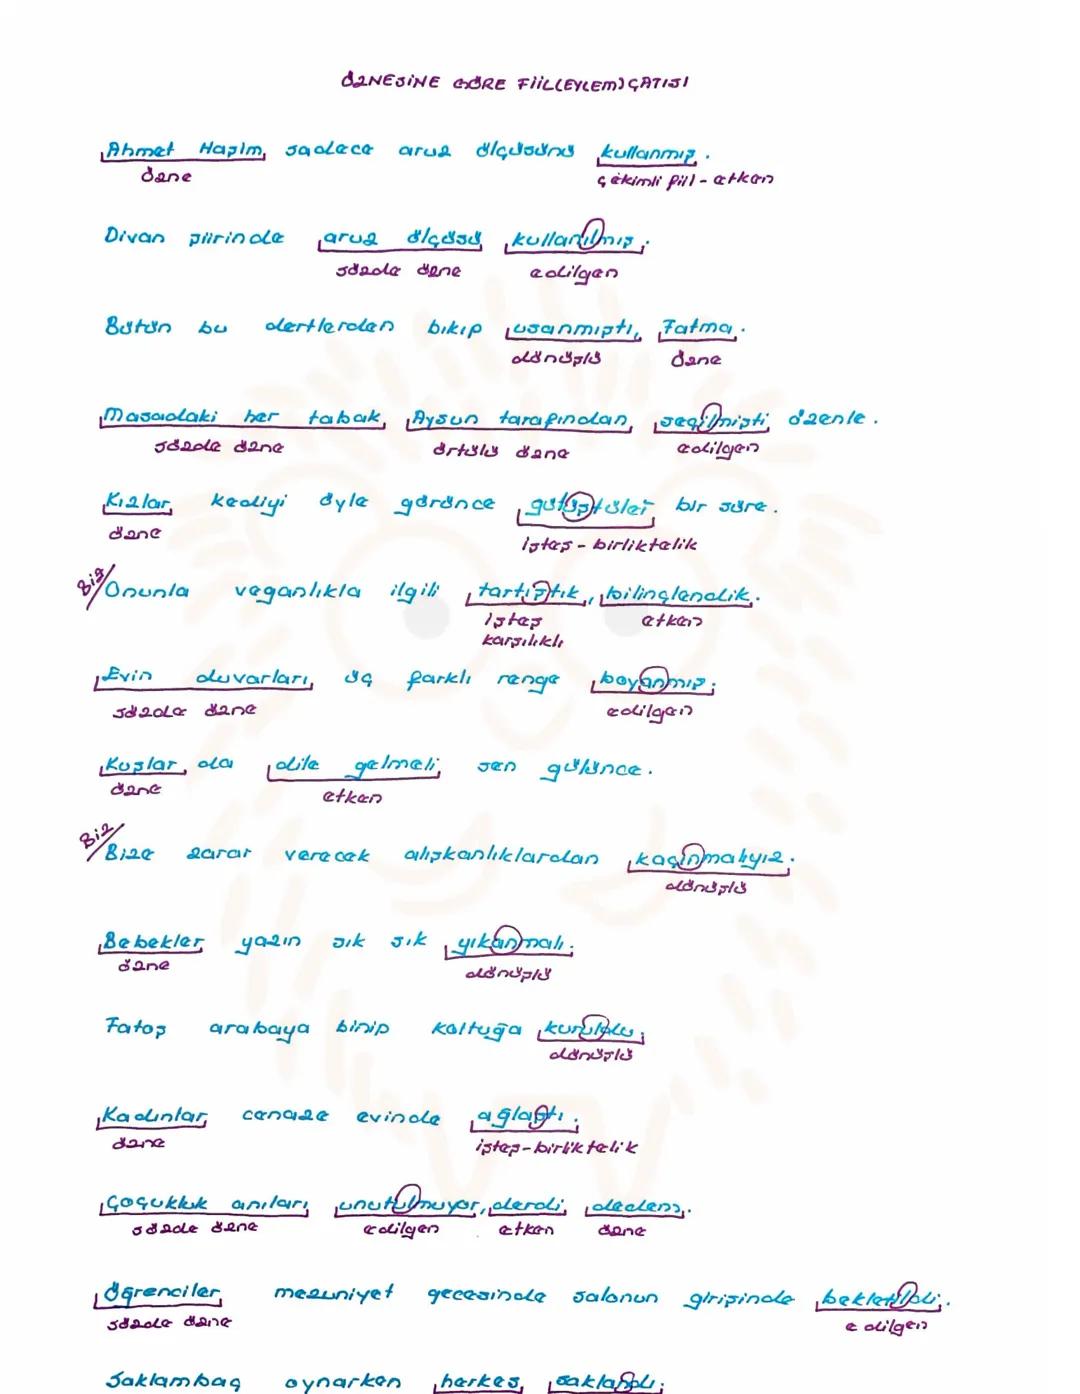 ÖZNESİNE GÖRE FİİL(EYLEM) ÇATISI
Ahmet Haşim, sadece aruz ölçüsünü kullanmış.
özne çekimli fiil - etken
Divan şiirinde aruz ölçüsü kullanılmış.
sözde özne edilgen
Bütün bu dertlerden bıkıp usanmıştı, Fatma.
dönüşlü özne
Masadaki her tabak, Aysun tarafından seçilmişti özenle.
sözde özne örtülü özne edilgen
Kızlar kediyi öyle görünce gülüştüler bir süre.
özne işteş - birliktelik
Biz/ Onunla veganlıkla ilgili tartıştık, bilinçlendik.
işteş etken
karşılıklı
Evin duvarları, üç farklı renge boyanmış.
sözde özne edilgen
Kuşlar da dile gelmeli sen gülünce.
özne etken
Biz/ Bize zarar verecek alışkanlıklardan kaçınmalıyız.
dönüşlü
Bebekler yazın sık sık yıkanmalı.
özne dönüşlü
Fatoş arabaya binip koltuğa kuruldu.
dönüşlü
Kadınlar, cenaze evinde ağlaştı.
özne işteş-birliktelik
Çoçukluk anıları unutulmuyor, derdi, dedem.
sözde özne edilgen etken özne
Öğrenciler, mezuniyet gecesinde salonun girişinde bekletildi.
sözde özne edilgen
Saklambaç oynarken herkes, saklandı.